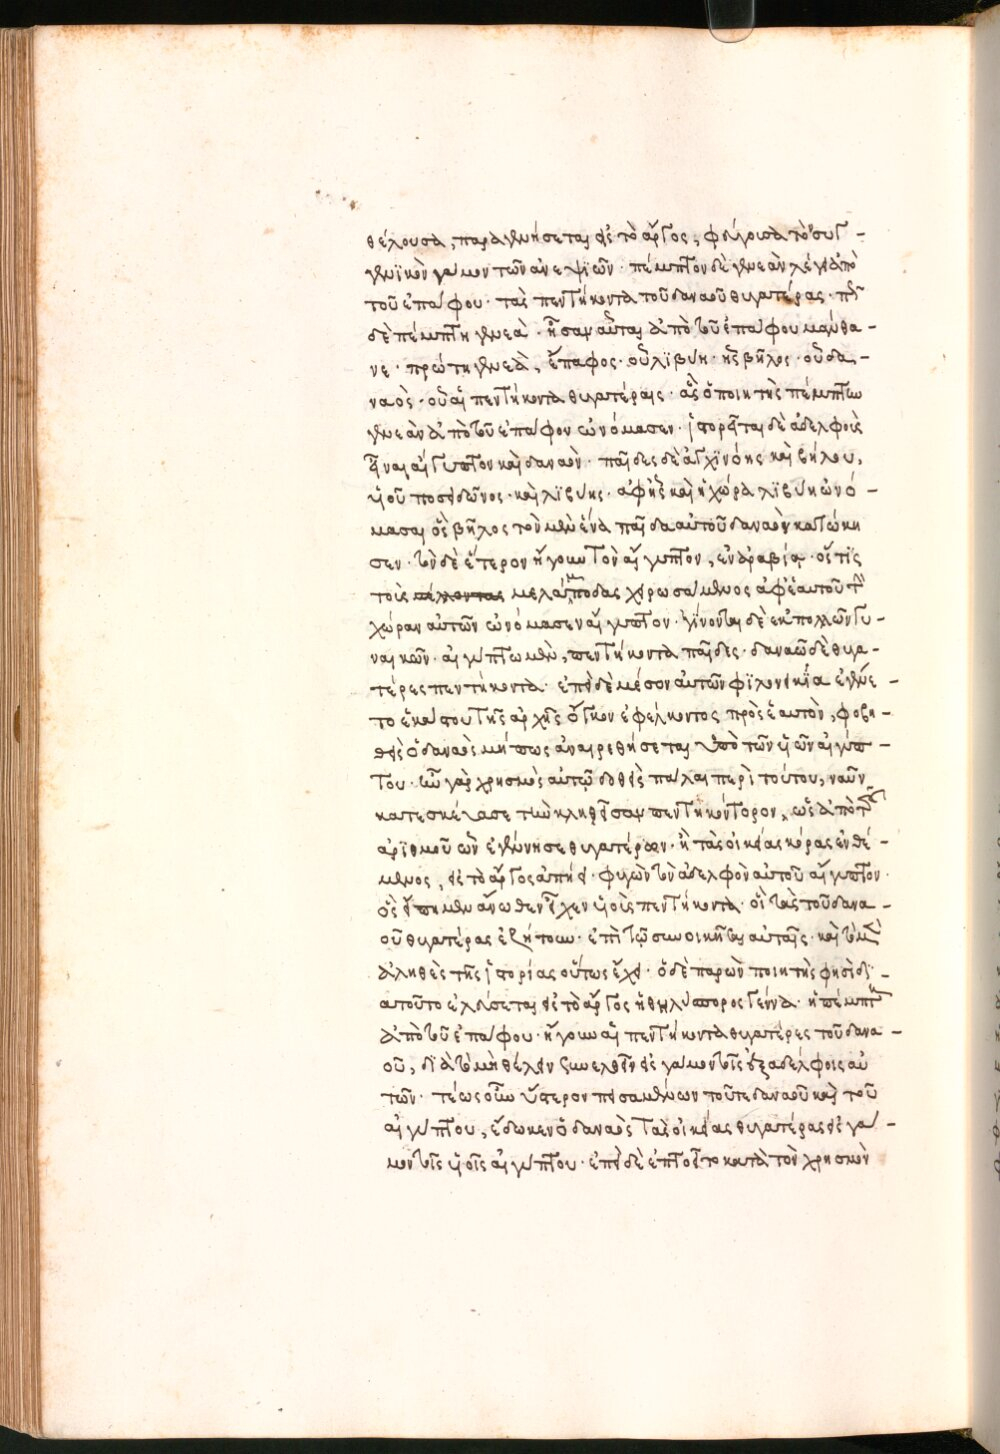 θέλουσα, παραγενήσεται εἰς τὸ ἄργος, φεύγουσα τὸ συγ-
γενικὸν γάμον τῶν ἀνεψιῶν· πέμπτον δὲ γενεὰν λέγει ἀπὸ
τοῦ ἐπάφου· τὰς πεντήκοντα τοῦ δαναοῦ θυγατέρας·
δὲ πέμπτη γενεὰ· ἦσαν αὗται ἀπὸ τοῦ ἐπάφου μάνθα-
νε· πρώτη γενεὰ, ἔπαφος· οὗ λϊβύη· ἧς βῆλος· οὗ δα-
ναὸς· οὗ αἱ πεντήκοντα θυγατέραις· ἃς ὁ ποιητὴς πέμπτω
γενεὰν ἀπὸ τοῦ ἐπάφου ὠνόμασεν· ἱστορεῖται δὲ ἀδελφοὺς
εἶναι αἴγυπτον καὶ δαναὸν· παῖδες δὲ ἀγχϊνόης καὶ βήλου,
υἱοῦ ποσειδῶνος· καὶ λϊβύης· ἀφ' ἧς καὶ ἡ χώρα λϊβύη ὠνό-
μασαι ὃς βῆλος τὸν μὲν ἕνα παῖδα αὐτοῦ δαναὸν κατώκη
σεν· τὸν δὲ ἕτερον ἤγουν τὸν αἴγυπτον, ἐν ἀραβίᾳ· ὅς τϊς
τοὺς μελάμποδας χειρωσάμενος ἀφ' ἑαυτοῦ τὴν
χώραν αὐτῶν ὠνόμασεν αἴγυπτον· γίνονται δὲ ἐκ πολλῶν γυ-
ναικῶν· αἰγύπτω μὲν, πεντήκοντα παῖδες· δαναῶ δὲ θυγα-
τέρες πεντήκοντα· ἐπεὶ δὲ μέσον αὐτῶν φϊλονεικία ἐγένε-
το ἑκάστου τῆς ἀρχῆς ὄγκον ἐφέλκοντος πρὸς ἑαυτὸν, φοβη-
θεὶς ὁ δαναὸς μήπως ἀναιρεθήσεται ὑπὸ τῶν υἱῶν αἰγύπ-
του· ἦν γὰρ χρησμὸς αὐτῷ δοθεὶς πάλαι περὶ τούτου, ναῦν
κατεσκεύασε τὴν κληθεῖσαν πεντηκόντορον, ὡς ἀπὸ τοῦ
ἀρϊθμοῦ ὧν ἐγέννησε θυγατέρων· ἢ τὰς οἰκείας κόρας ἐνθέ-
μενος, εἰς τὸ ἄργος ἀπῄει· φυγὼν τὸν ἀδελφὸν αὐτοῦ αἴγυπτον·
ὃς ἔτι μὲν ἄνωθεν εἶχεν υἱοὺς πεντήκοντα· οἳ τὰς τοῦ δανα-
οῦ θυγατέρας ἐζήτουν· ἐπὶ τῷ συνοικῆσαι αὐταῖς· καὶ τὸ μὲν
ἀληθὲς τῆς ἱστορίας οὕτως ἔχει· ὁ δὲ παρὼν ποιητὴς φησὶ δι-
ατοῦτο ἐλεύσεται εἰς τὸ ἄργος ἡ θηλύσπορος γέννα· ἡ πέμπτη
ἀπὸ τοῦ ἐπάφου· ἤγουν αἱ πεντήκοντα θυγατέρες τοῦ δανα-
οῦ, διὰ τὸ μὴ θέλειν συνελθεῖν εἰς γάμον τοῖς ἐξαδέλφοις αὐ
τῶν· τέως οὖν ὕστερον πεισαμένων τοῦτε δαναοῦ καὶ τοῦ
αἰγύπτου, ἔδωκεν ὁ δαναὸς τὰς οἰκείας θυγατέρας εἰς γά-
μον τοῖς υἱοῖς αἰγύπτου· ἐπεὶ δὲ ἐπτοεῖτο κατὰ τὸν χρησμὸν